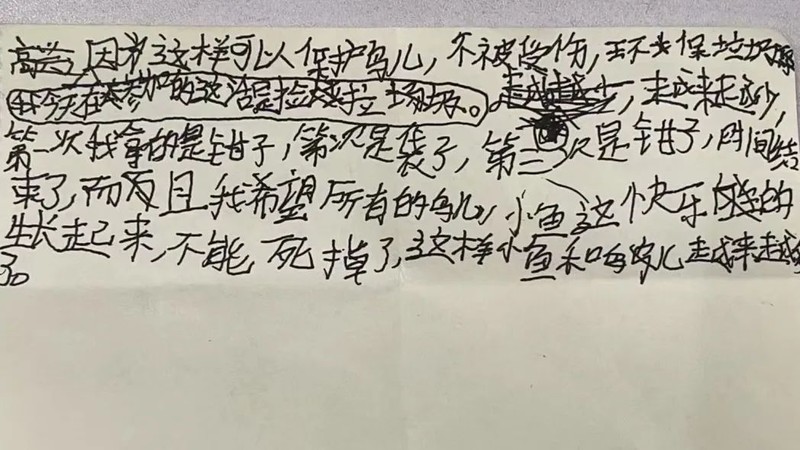 高兴，因为这样可以保护鸟儿，不被受伤，环保垃圾
我今天在参加的这活是捡垃圾。越来越少，
第一次我拿的是钳子，第次是袋了，第三次是钳子，时间结
束了，而及且我希望所有的鸟儿，小鱼这快乐的
生长起来，不能死掉了，这样小鱼和鸟儿越来越
了。